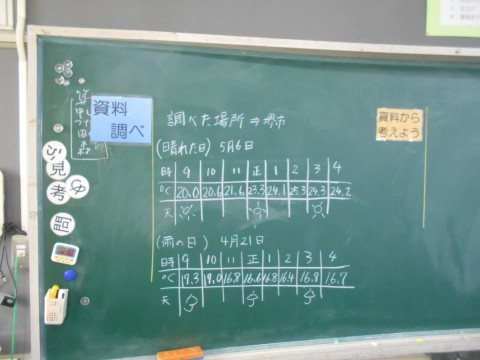 資料
調べ
調べた場所⇒堺市
資料から
考えよう
(晴れた日) 5月6日
時 9 10 11 正 1 2 3 4
℃ 20.0 20.6 21.6 23.3 24.1 25.3 24.3 24.2
天
(雨の日) 4月21日
時 9 10 11 正 1 2 3 4
℃ 19.3 18.0 16.8 16.6 16.8 16.4 16.8 16.7
天
見
考